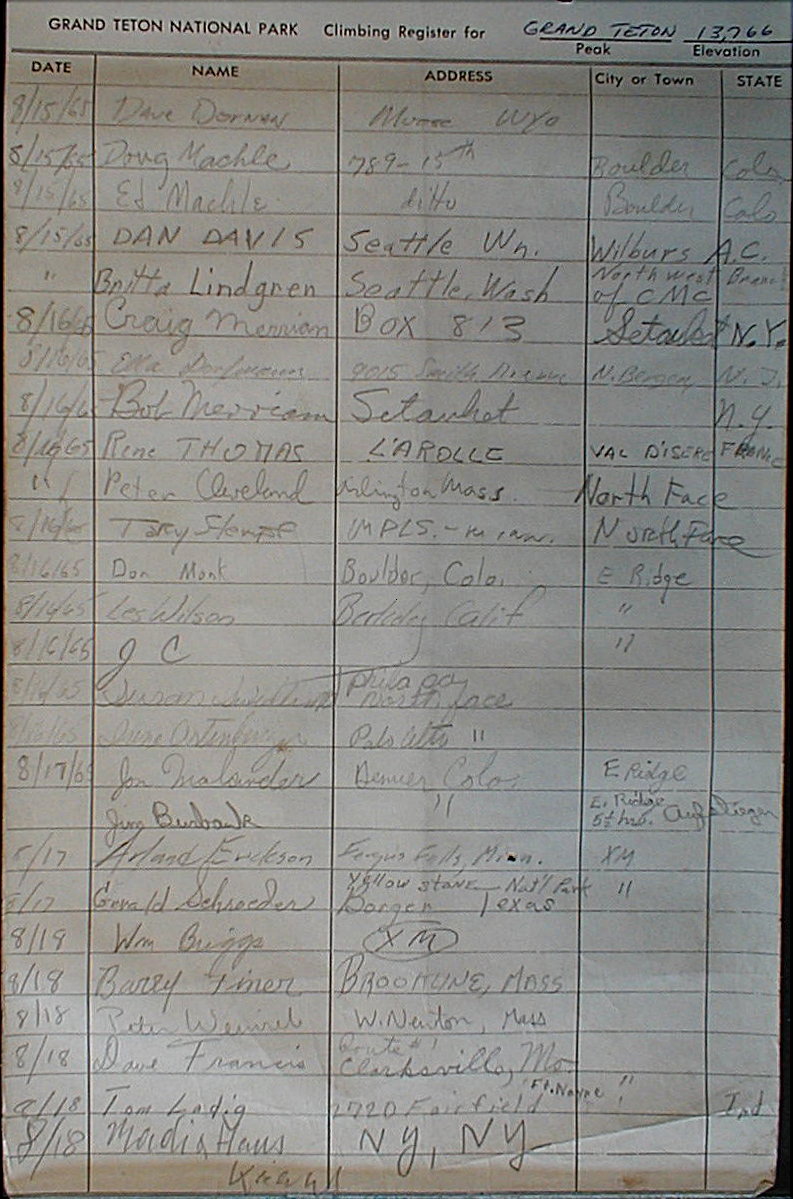 GRAND TETON NATIONAL PARK Climbing Register for GRAND TETON 13,766
Peak Elevation
DATE NAME ADDRESS City or Town STATE
8/15/65 Dave Dornan Moose Wyo
8/15/65 Doug Machle 789-15th Boulder Colo
8/15/65 Ed Machle ditto Boulder Colo
8/15/65 DAN DAVIS Seattle Wn. Wilburs A.C.
" Britta Lindgren Seattle, Wash Northwest Branch
of CMC
8/16/65 Craig Merriam Box 813 Setauket N.Y.
8/16/65 9015 Smith Avenue N. Bergen N.J.
8/16/65 Bob Merriam Setauket N.Y.
8/16/65 Rene THOMAS L'AROLLE VAL D'ISERE FRANCE
" Peter Cleveland Arlington Mass. North Face
8/16/65 MPLS. - North Face
8/16/65 Don Monk Boulder, Colo. E Ridge
8/16/65 Les Wilson Berkeley Calif "
8/16/65 J C "
8/16/65 Susan Phila Pa
North face
8/16/65 Palo Alto "
8/17/65 Jon Denver Colo. E Ridge
Jim Burbank " E. Ridge
5½ hrs. Aufstiegen
8/17 Arland Erickson Fergus Falls, Minn. XM
Yellowstone Nat'l Park
8/17 Gerald Schroeder Borger Texas "
8/19 Wm Briggs XM
8/18 Barry BROOKLINE, MASS
8/18 Peter W. Newton, Mass
Route #1
8/18 Dave Francis Clarksville, Mo.
Ft. Wayne "
8/18 Tom Ladig 1720 Fairfield Ind
8/18 Haus NY, NY